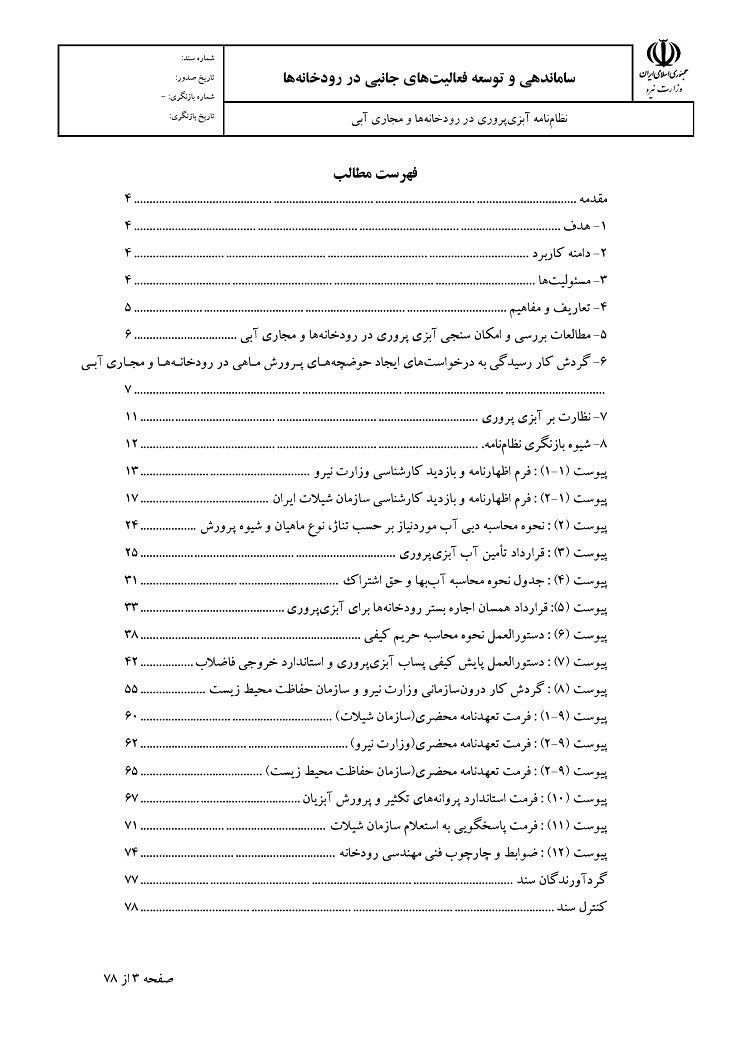 جمهوری اسلامی ایران
وزارت نیرو
ساماندهی و توسعه فعالیت‌های جانبی در رودخانه‌ها
شماره سند:
تاریخ صدور:
شماره بازنگری: -
تاریخ بازنگری:
نظام‌نامه آبزی‌پروری در رودخانه‌ها و مجاری آبی
فهرست مطالب
مقدمه ........ ۴
۱- هدف ........ ۴
۲- دامنه کاربرد ........ ۴
۳- مسئولیت‌ها ........ ۴
۴- تعاریف و مفاهیم ........ ۵
۵- مطالعات بررسی و امکان سنجی آبزی پروری در رودخانه‌ها و مجاری آبی ........ ۶
۶- گردش کار رسیدگی به درخواست‌های ایجاد حوضچه‌هـای پـرورش مـاهی در رودخانـه‌هـا و مجـاری آبـی
........ ۷
۷- نظارت بر آبزی پروری ........ ۱۱
۸- شیوه بازنگری نظام‌نامه. ........ ۱۲
پیوست (۱-۱) : فرم اظهارنامه و بازدید کارشناسی وزارت نیرو ........ ۱۳
پیوست (۱-۲) : فرم اظهارنامه و بازدید کارشناسی سازمان شیلات ایران ........ ۱۷
پیوست (۲) : نحوه محاسبه دبی آب موردنیاز بر حسب تناژ، نوع ماهیان و شیوه پرورش ........ ۲۴
پیوست (۳) : قرارداد تأمین آب آبزی‌پروری ........ ۲۵
پیوست (۴) : جدول نحوه محاسبه آب‌بها و حق اشتراک ........ ۳۱
پیوست (۵): قرارداد همسان اجاره بستر رودخانه‌ها برای آبزی‌پروری ........ ۳۳
پیوست (۶) : دستورالعمل نحوه محاسبه حریم کیفی ........ ۳۸
پیوست (۷) : دستورالعمل پایش کیفی پساب آبزی‌پروری و استاندارد خروجی فاضلاب ........ ۴۲
پیوست (۸) : گردش کار درون‌سازمانی وزارت نیرو و سازمان حفاظت محیط زیست ........ ۵۵
پیوست (۹-۱) : فرمت تعهدنامه محضری(سازمان شیلات) ........ ۶۰
پیوست (۹-۲) : فرمت تعهدنامه محضری(وزارت نیرو) ........ ۶۲
پیوست (۹-۲) : فرمت تعهدنامه محضری(سازمان حفاظت محیط زیست) ........ ۶۵
پیوست (۱۰) : فرمت استاندارد پروانه‌های تکثیر و پرورش آبزیان ........ ۶۷
پیوست (۱۱) : فرمت پاسخگویی به استعلام سازمان شیلات ........ ۷۱
پیوست (۱۲) : ضوابط و چارچوب فنی مهندسی رودخانه ........ ۷۴
گردآورندگان سند ........ ۷۷
کنترل سند ........ ۷۸
صفحه ۳ از ۷۸